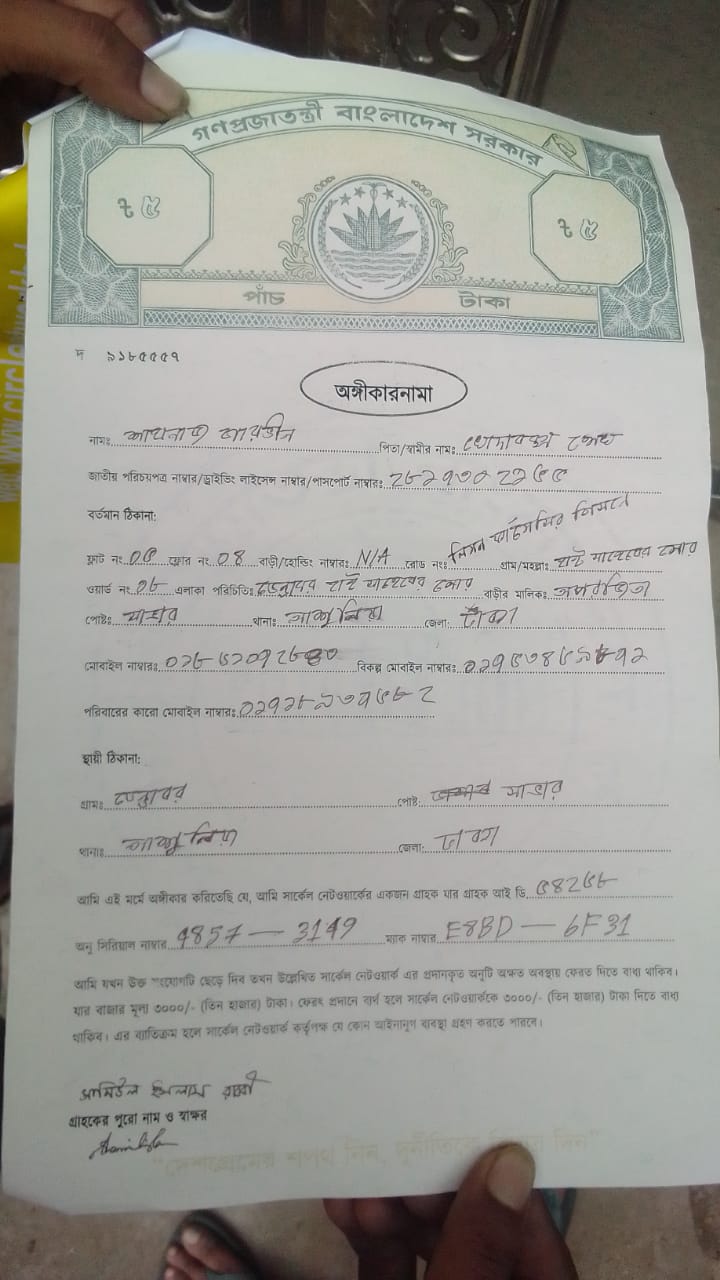 গণপ্রজাতন্ত্রী বাংলাদেশ সরকার
৳ ৫ ৳ ৫
পাঁচ টাকা
দ ৯১৮৫৫৫৭
অঙ্গীকারনামা
নামঃ শাহনাজ পারভীন পিতা/স্বামীর নাম: খোদাবক্স শেখ
জাতীয় পরিচয়পত্র নাম্বার/ড্রাইভিং লাইসেন্স নাম্বার/পাসপোর্ট নাম্বারঃ
বর্তমান ঠিকানা:
ফ্লাট নং ফ্লোর নং ০৪ বাড়ী/হোল্ডিং নাম্বারঃ N/A রোড নং গ্রাম/মহল্লাঃ হাই সাহেবের মোড়
ওয়ার্ড নং ০৮ এলাকা পরিচিতিঃ ডেন্ডাবর হাই সাহেবের মোড় বাড়ীর মালিকঃ
পোষ্টঃ সাভার থানাঃ আশুলিয়া জেলা: ঢাকা
মোবাইল নাম্বারঃ বিকল্প মোবাইল নাম্বারঃ
পরিবারের কারো মোবাইল নাম্বারঃ
স্থায়ী ঠিকানা:
গ্রামঃ ডেন্ডাবর পোষ্ট: সাভার
থানাঃ আশুলিয়া জেলা: ঢাকা
আমি এই মর্মে অঙ্গীকার করিতেছি যে, আমি সার্কেল নেটওয়ার্কের একজন গ্রাহক যার গ্রাহক আই ডি ৫৪২৫৮
অনু সিরিয়াল নাম্বার 4857 - 3149 ম্যাক নাম্বার E8BD - 6F31
আমি যখন উক্ত সংযোগটি ছেড়ে দিব তখন উল্লেখিত সার্কেল নেটওয়ার্ক এর প্রদানকৃত অনুটি অক্ষত অবস্থায় ফেরত দিতে বাধ্য থাকিব।
যার বাজার মূল্য ৩০০০/- (তিন হাজার) টাকা। ফেরৎ প্রদানে ব্যর্থ হলে সার্কেল নেটওয়ার্ককে ৩০০০/- (তিন হাজার) টাকা দিতে বাধ্য
থাকিব। এর ব্যাতিক্রম হলে সার্কেল নেটওয়ার্ক কর্তৃপক্ষ যে কোন আইনানুগ ব্যবস্থা গ্রহণ করতে পারবে।
সামিউল ইসলাম রাব্বী
গ্রাহকের পুরো নাম ও স্বাক্ষর
"দেশপ্রেমের শপথ নিন, দুর্নীতিকে বিদায় দিন"